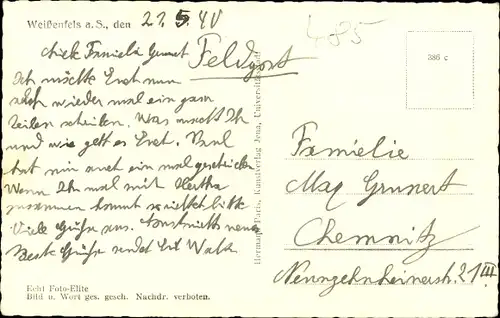 Weißenfels a.S., den 22.5.40
485
Feldpost
386 c
Familie
Ich möchte Euch nun
auch wieder mal ein paar
Zeilen schreiben. Was macht Ihr
und wie geht es Euch.
hat mir auch ein mal geschrieben
Wenn Ihr mal mit Hertha
zusammen kommt bitte
Viele Grüße aus. neues
Beste Grüße sendet Walt
Hermann Paris, Kunstverlag Jena, Universitätsstr.
Familie
Max Grunert
Chemnitz
21 III
Echt Foto-Elite
Bild u. Wort ges. gesch. Nachdr. verboten.